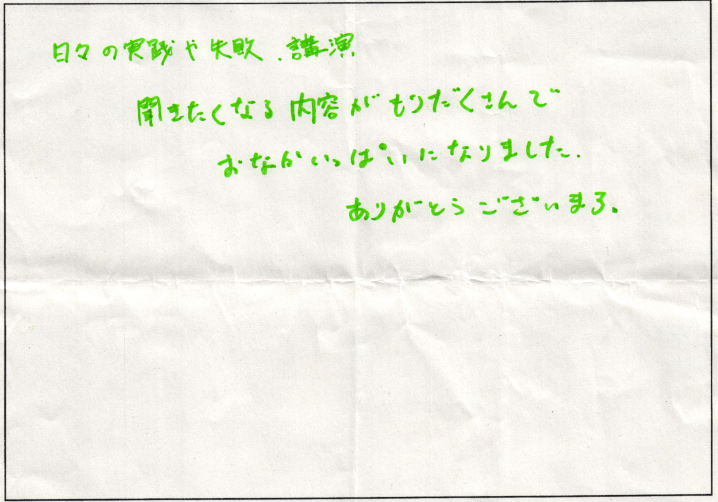 日々の実践や失敗、講演
聞きたくなる内容がもりだくさんで
おなかいっぱいになりました.
ありがとうございまる。